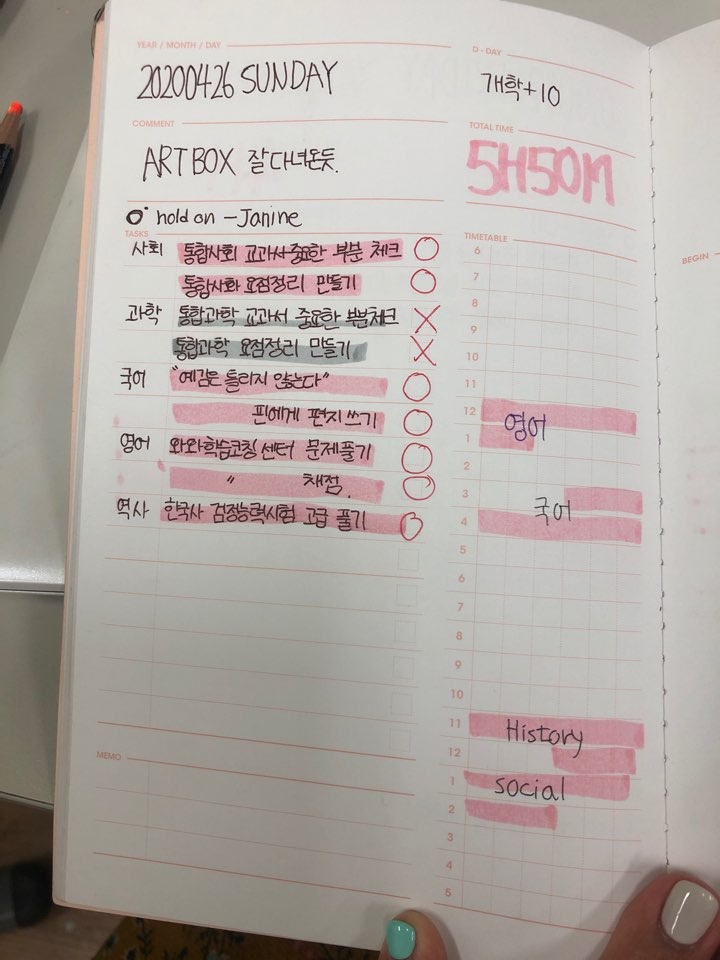 YEAR / MONTH / DAY
20200426 SUNDAY
D-DAY
개학+10
COMMENT
ART BOX 잘다녀온듯.
TOTAL TIME
5H50M
hold on - Janine
TASKS
사회 통합사회 교과서 중요한 부분 체크 O
통합사회 요점정리 만들기 O
과학 통합과학 교과서 중요한 부분체크 X
통합과학 요점정리 만들기 X
국어 "예감은 틀리지 않는다" O
핀에게 편지 쓰기 O
영어 와와학습코칭 센터 문제풀기 O
〃 채점. O
역사 한국사 검정능력시험 고급 풀기 O
MEMO
TIMETABLE
6
7
8
9
10
11
12
영어
1
2
3
국어
4
5
6
7
8
9
10
11 History
12
1 social
2
3
4
5
BEGIN